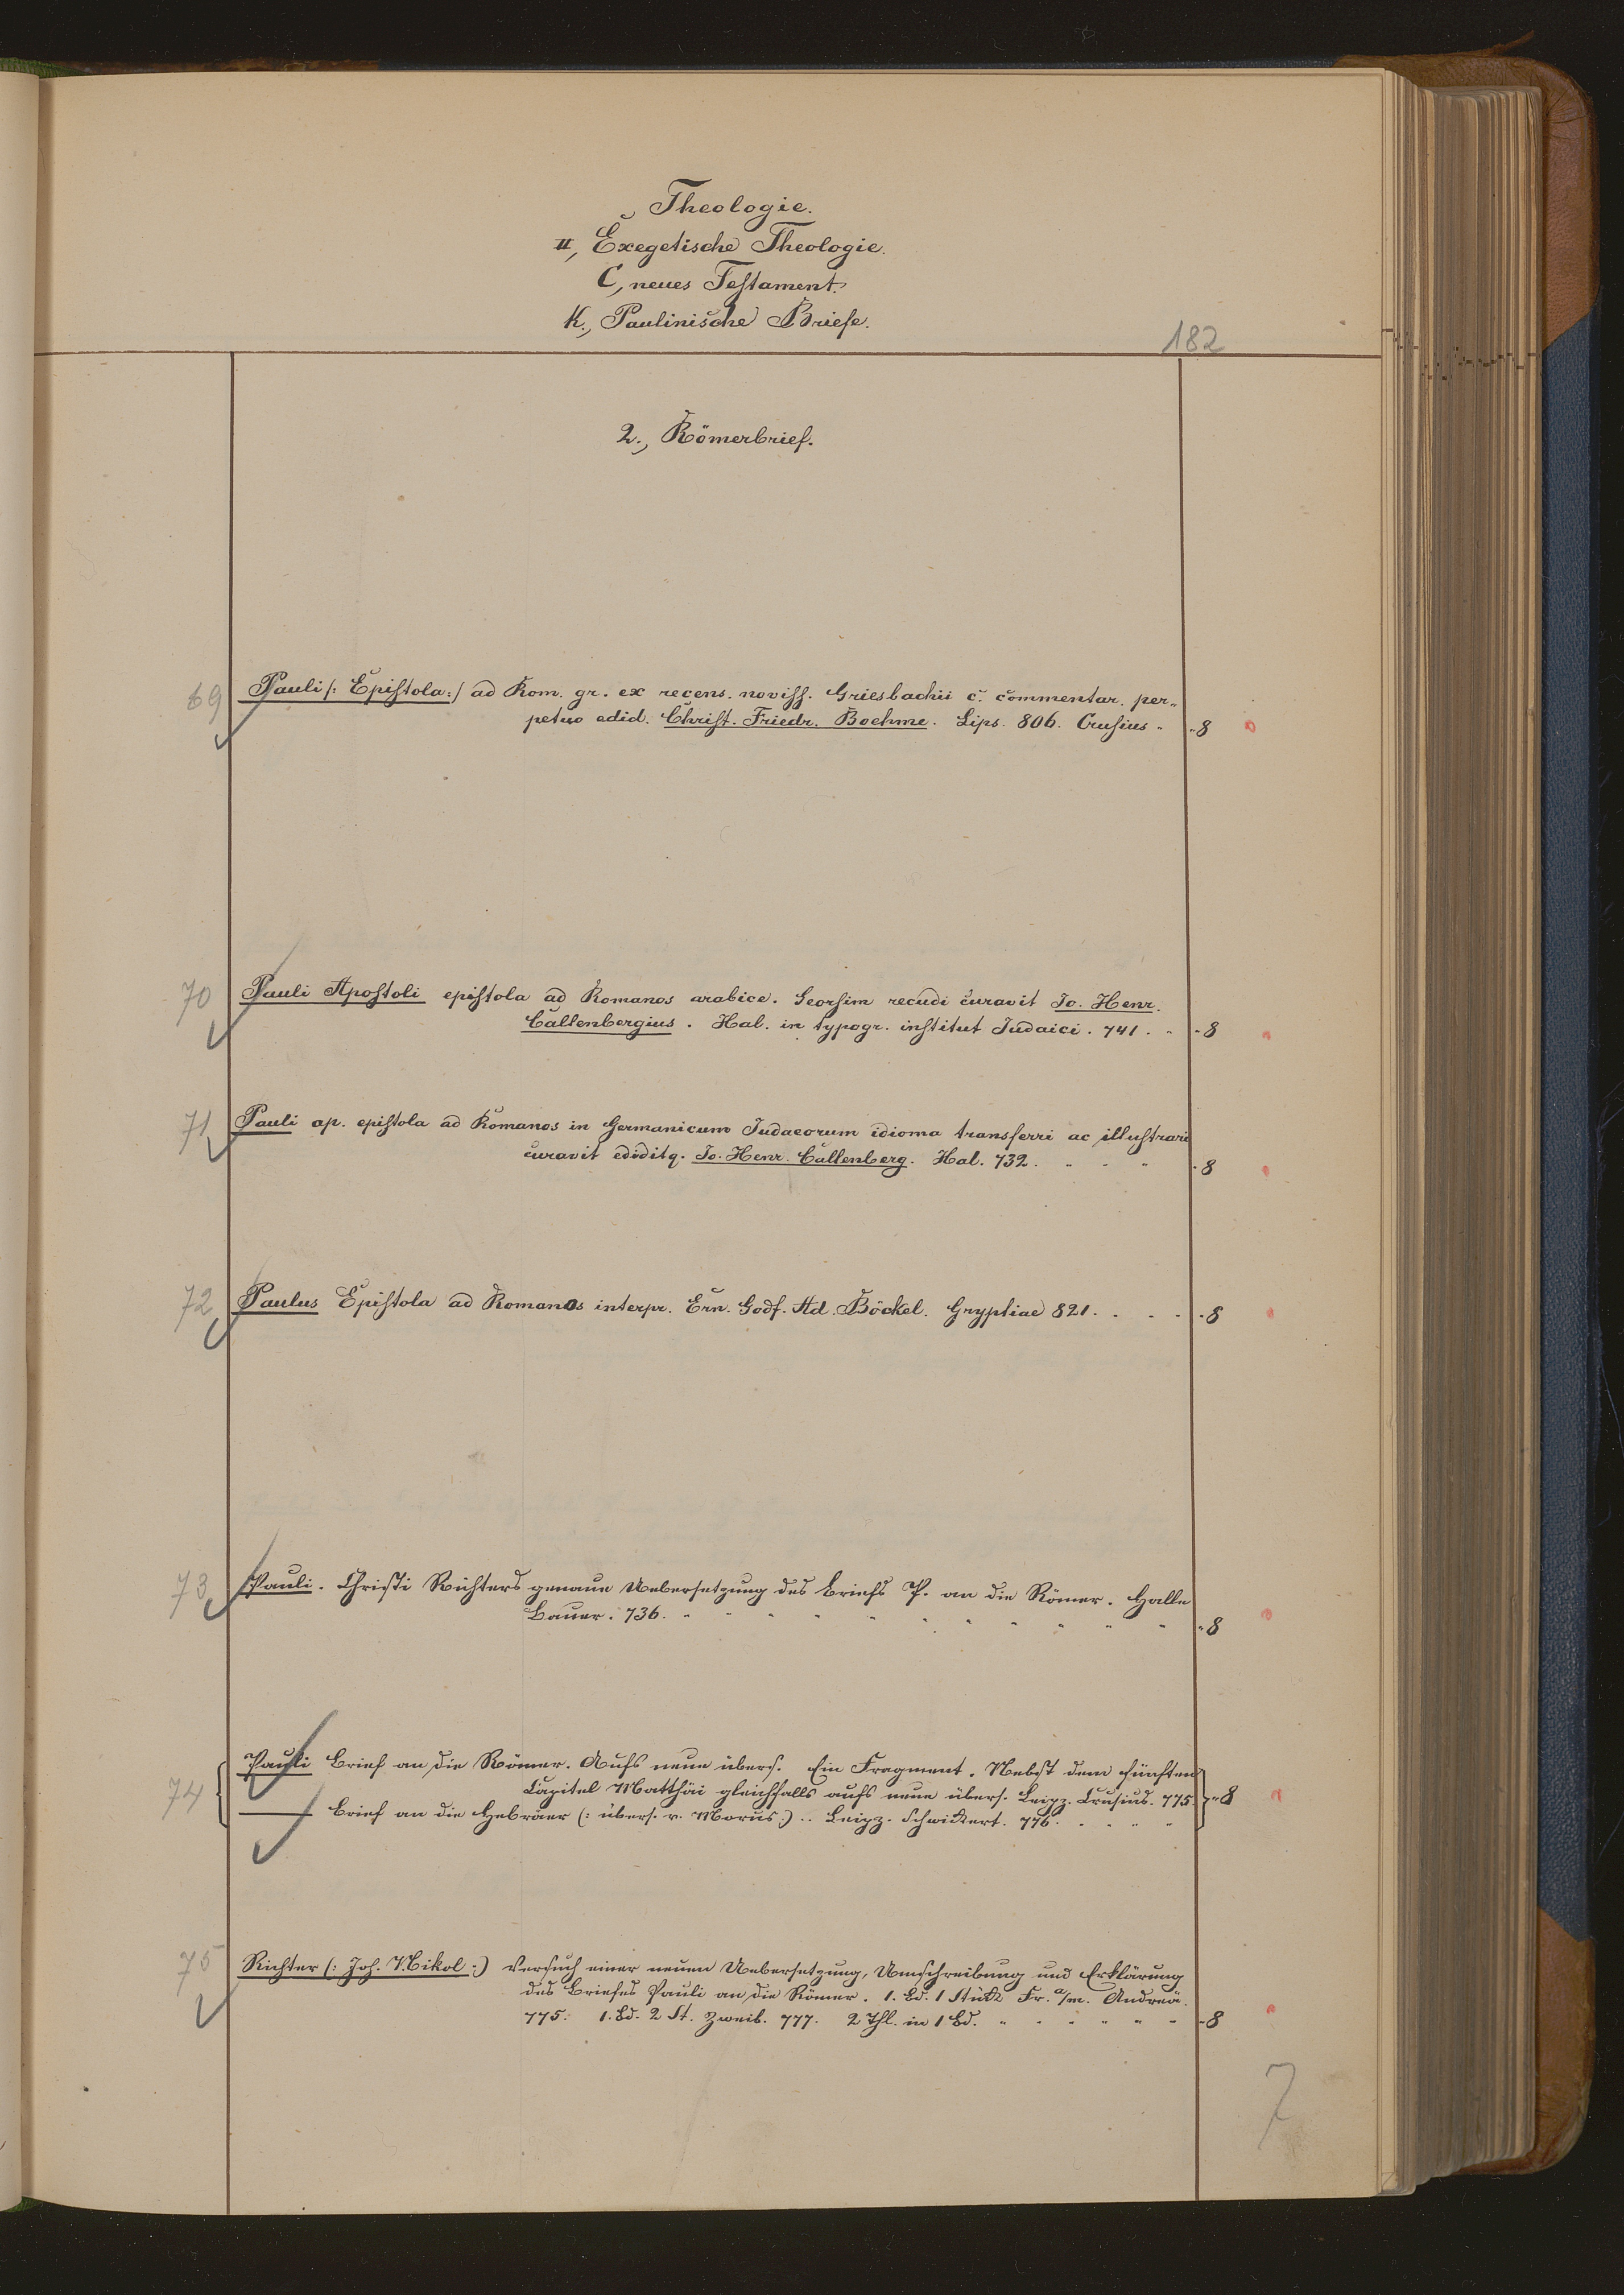 Theologie.
II, Exegetische Theologie.
C, neues Testament.
K., Paulinische Briefe.
182
2., Römerbrief.
69 Pauli (: Epistola :) ad Rom. gr. ex recens. noviss. Griesbachii c. commentar. per„
petuo edid. Christ. Friedr. Boehme. Lips. 806. Crusius " "8
70 Pauli Apostoli epistola ad Romanos arabice. Seorsim recudi curavit Jo. Henr.
Callenbergius. Hal. in typogr. institut Judaici. 741. " -8
71 Pauli ap. epistola ad Romanos in Germanicum Judaeorum idioma transferri ac illustrari
curavit ediditq. Jo. Henr. Callenberg. Hal. 732. " " " -8
72 Paulus Epistola ad Romanos interpr. Ern. Godf. Ad. Böckel. Gryptiae 821. . . . -8
73 Pauli. Christi Richters genaue Uebersetzung des Briefs P. an die Römer. Halle
Bauer. 736. " " " " " " " " " " "8
74 Pauli Brief an die Römer. Aufs neue übers. Ein Fragment. Nebst dem fünften
Capitel Matthäi gleichfalls aufs neue übers. Leipz. Crusius. 775. "8
—— Brief an die Hebräer (: übers. v. Morus :) .. Leipz. Schwickert. 776. . . . .
75 Richter (: Joh. Nikol :) Versuch einer neuen Uebersetzung, Umschreibung und Erklärung
des Briefes Pauli an die Römer. 1. Bd. 1 Stück Fr. a/m. Andreä.
775. 1. Bd. 2 St. Zweib. 777. 2 Thl. in 1 Bd. " " " " " " -8
7